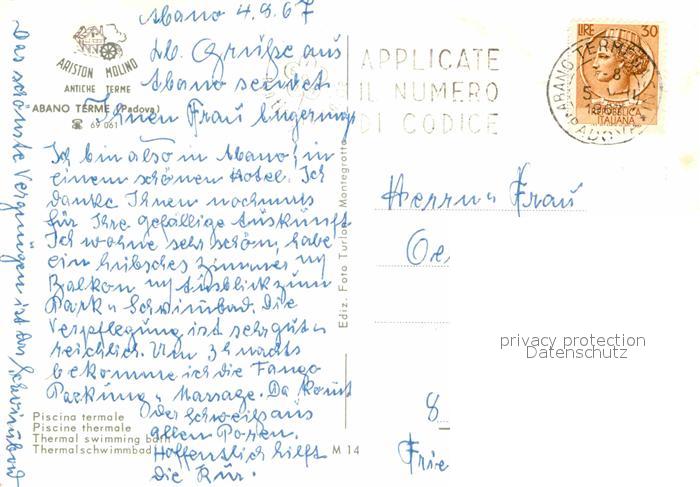 Abano 4.9.67
Lb. Grüße aus
Abano sendet
Ihnen Frau
Ich bin also in Abano, in
einem schönen Hotel. Ich
danke Ihnen nochmals
für Ihre gefällige Auskunft
Ich wohne sehr schön, habe
ein hübsches Zimmer m/
Balkon m/ Ausblick zum
Park u Schwimbad. Die
Verpflegung ist sehr gut u
reichlich. Um 3 h nachts
bekomme ich die Fango
Packung u Massage. Da komt
der Schweiß aus
allen Poren.
Hoffentlich hilft
die Kur.
Das schönste Vergnügen ist das Schwimbad
ARISTON MOLINO
ANTICHE TERME
ABANO TERME (Padova)
☎ 69 061
Piscina termale
Piscine thermale
Thermal swimming bath
Thermalschwimmbad
M 14
Ediz. Foto Turlon - Montegrotto
APPLICATE
IL NUMERO
DI CODICE
LIRE 30
REPUBBLICA
ITALIANA
ABANO TERME
Herrn u Frau
Oe
8
Frie
privacy protection
Datenschutz